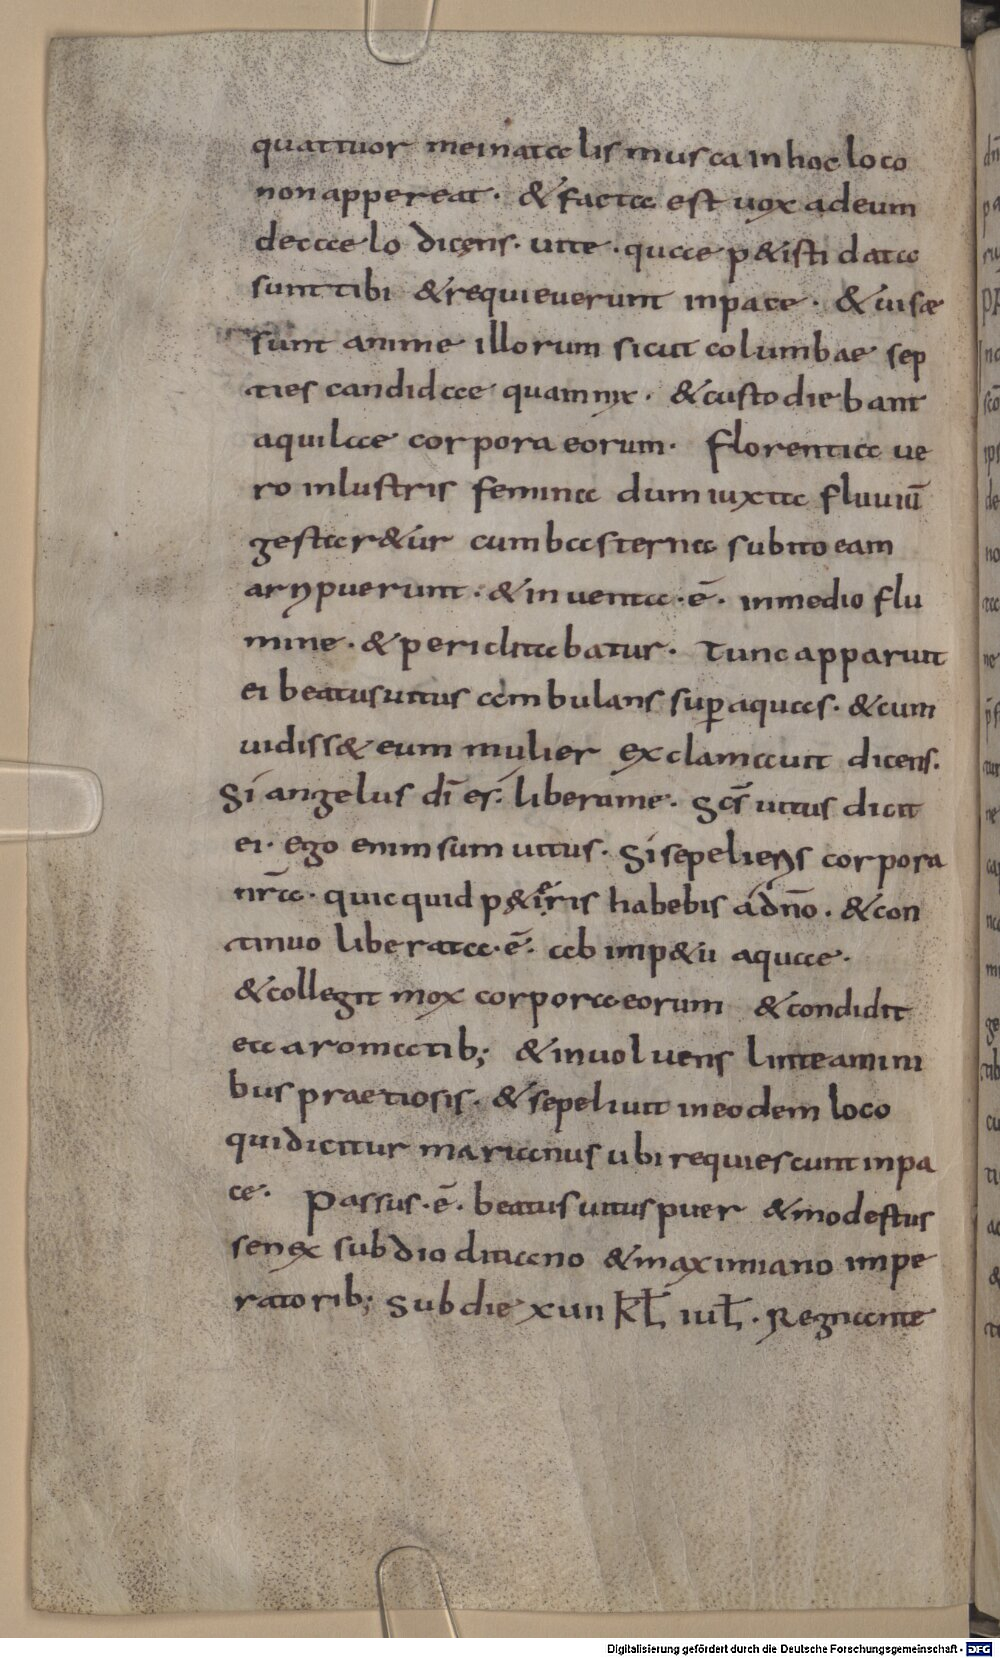 quattuor mei natalis musca in hoc loco
non appereat · & facta est vox ad eum
de caelo dicens · uite · quae p&isti data
sunt tibi & requieuerunt in pace · & uisæ
sunt anime illorum sicut columbae sep
ties candidae quam nix · & custodiebant
aquilae corpora eorum · Florentia ue
ro inlustris femina dum iuxta fluuiū
gestar&ur cum basterna subito eam
aripuerunt · & inuenta · ē · in medio flu
mine · & periclitabatur · Tunc apparuit
ei beatus uitus ambulans sup aquas · & cum
uidiss& eum mulier exclamauit dicens ·
Si angelus dī es · libera me · Scs̄ uitus dicit
ei · ego enim sum uitus · Si sepeliens corpora
nr̄a · quicquid p&ieris habebis a dn̄o · & con
tinuo liberata · ē · ab imp&u aquae ·
& collegit mox corpora eorum & condidit
ea aromatib; & inuoluens linteamini
bus praetiosis · & sepeliuit in eodem loco
qui dicitur marianus ubi requiescunt in pa
ce · Passus · ē · beatus uitus puer & modestus
senex sub diocliciano & maximiano impe
ratorib; Sub die xuii kl̄ iul̄ · Regnante
Digitalisierung gefördert durch die Deutsche Forschungsgemeinschaft - DFG